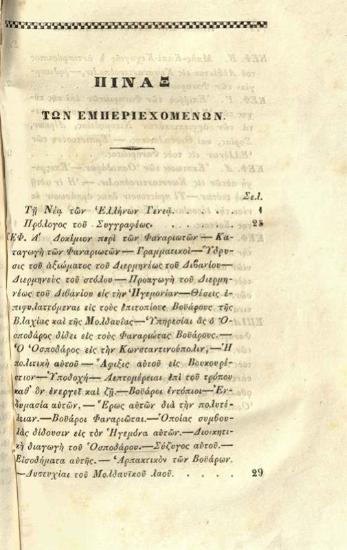 ΠΙΝΑΞ
ΤΩΝ ΕΜΠΕΡΙΕΧΟΜΕΝΩΝ.
Σελ.
Τῇ Νέᾳ τῶν Ἑλλήνων Γενεᾷ. 1
Πρόλογος τοῦ Συγγραφέως. 25
ΚΕΦ. Α΄ Δοκίμιον περὶ τῶν Φαναριωτῶν — Κα-
ταγωγὴ τῶν Φαναριωτῶν — Γραμματικοὶ — Ἵδρυ-
σις τοῦ ἀξιώματος τοῦ Διερμηνέως τοῦ Διβανίου—
Διερμηνεὺς τοῦ στόλου — Προαγωγὴ τοῦ Διερμη-
νέως τοῦ Διβανίου εἰς τὴν Ἡγεμονίαν — Θέσεις ἐ-
πιφυλαττόμεναι εἰς τοὺς ἐπιτοπίους Βοϋάρους τῆς
Βλαχίας καὶ τῆς Μολδαυίας — Ὑπηρεσίαι ἃς ὁ Ὁ-
σποδάρος δίδει εἰς τοὺς Φαναριώτας Βοϋάρους.—
Ὁ Ὁσποδάρος εἰς τὴν Κωνσταντινούπολιν,—Ἡ
πολιτικὴ αὐτοῦ — Ἄφιξις αὐτοῦ εἰς Βουκουρέ-
στιον — Ὑποδοχὴ — Λεπτομέρειαι ἐπὶ τοῦ τρόπου
καθ' ὃν ἐνεργεῖ καὶ ζῇ.— Βοϋάροι ἐντόπιοι — Ἐν-
δυμασία αὐτῶν, — Ἔρως αὐτῶν διὰ τὴν πολυτέ-
λειαν.— Βοϋάροι Φαναριῶται.— Ὁποίας συμβου-
λὰς δίδουσιν εἰς τὸν Ἡγεμόνα αὐτῶν.— Διοικητι-
κὴ διαγωγὴ τοῦ Ὁσποδάρου.— Σύζυγος αὐτοῦ.—
Εἰσοδήματα αὐτῆς. — Ἁρπακτικὸν τῶν Βοϋάρων.
—Δυστυχίαι τοῦ Μολδαυϊκοῦ λαοῦ. . . . . 29